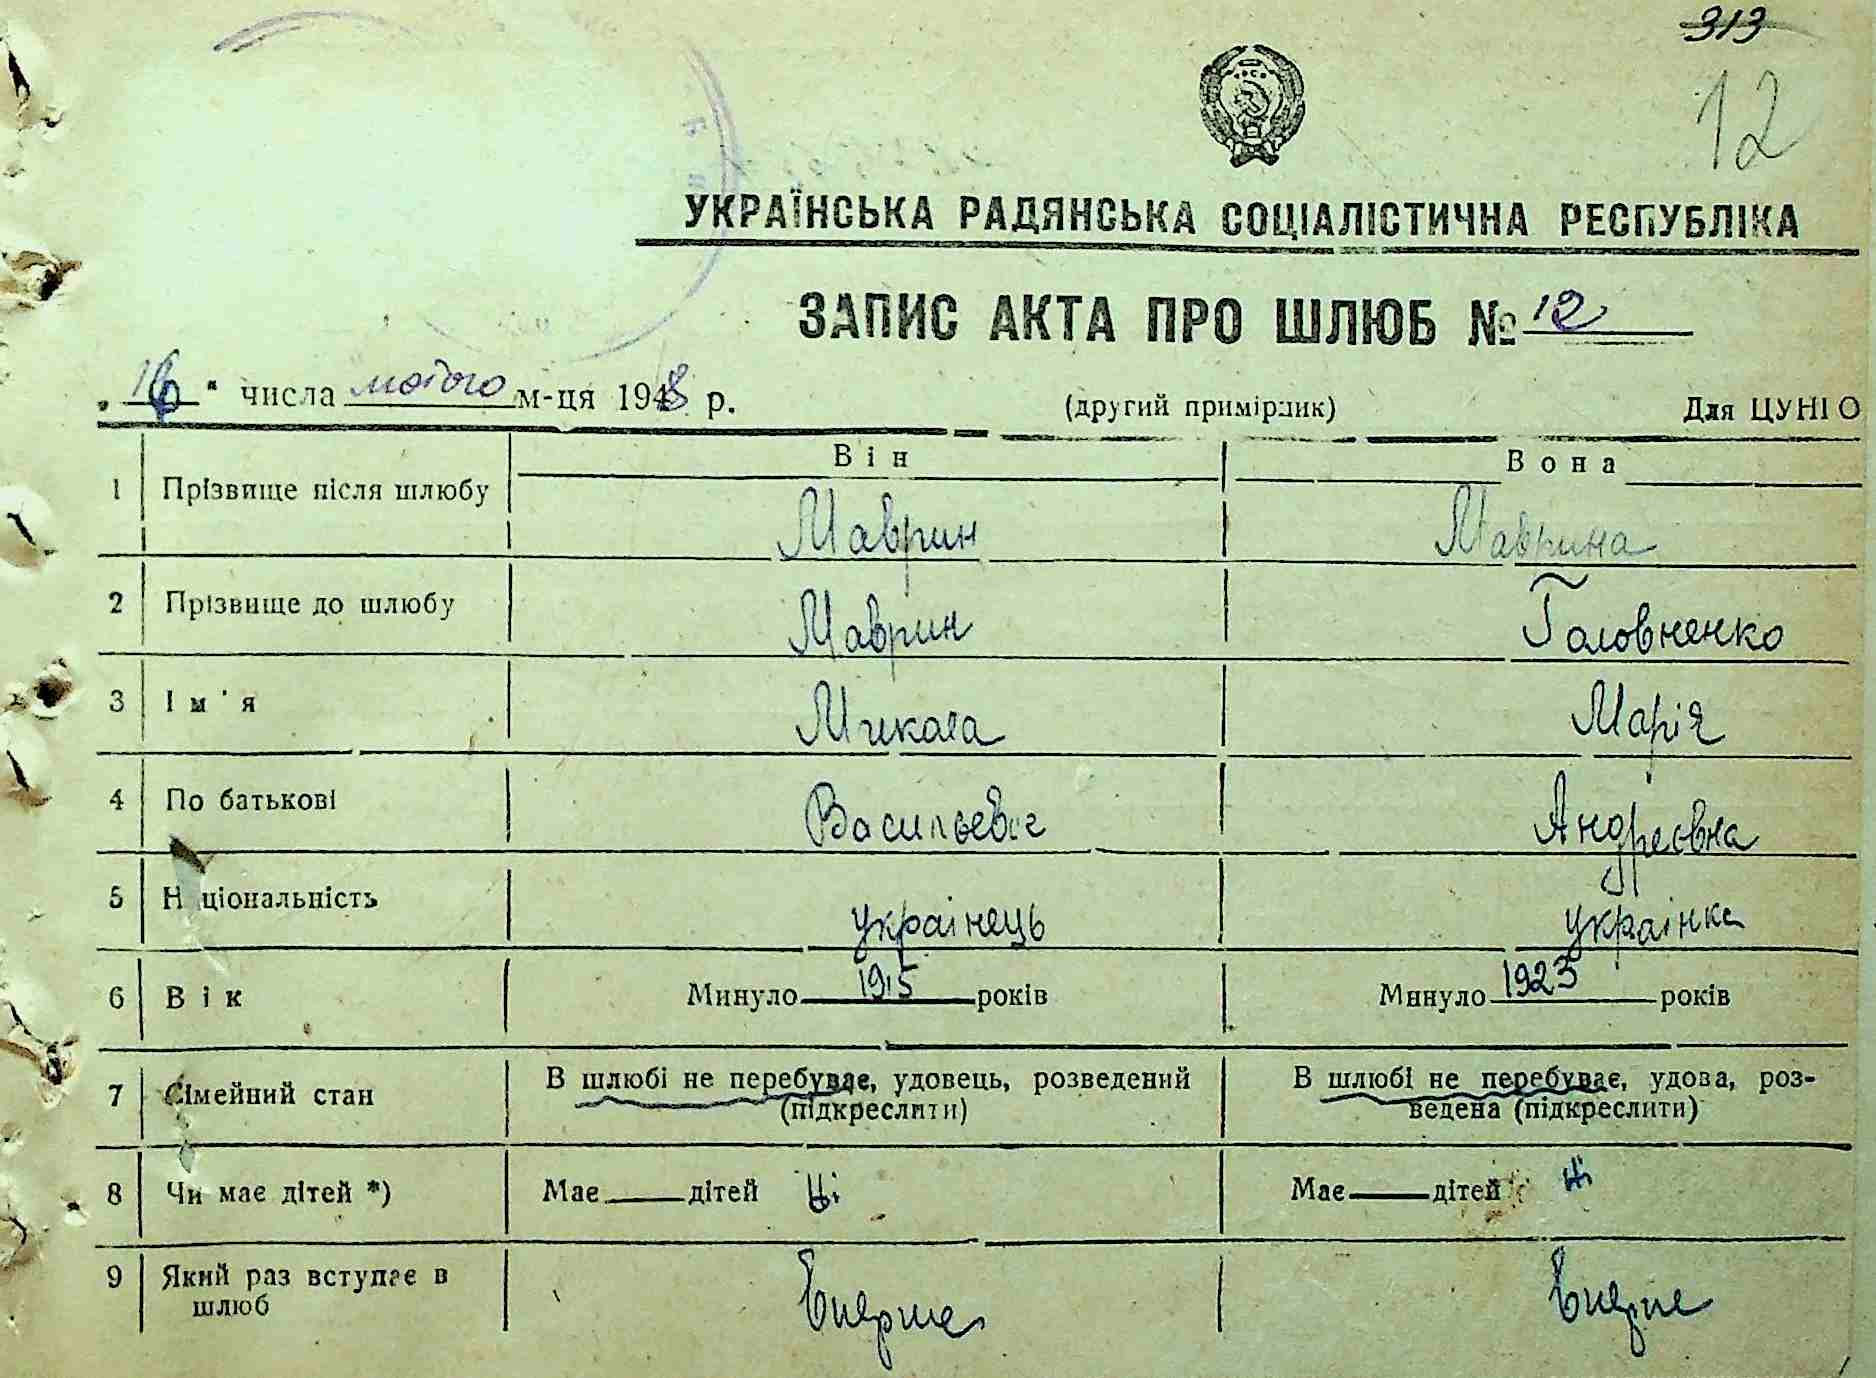 313
12
УКРАЇНСЬКА РАДЯНСЬКА СОЦІАЛІСТИЧНА РЕСПУБЛІКА
ЗАПИС АКТА ПРО ШЛЮБ № 12
" числа лютого м-ця 1948 р. (другий примірник) Для ЦУНІО
Він Вона
1 Прізвище після шлюбу Маврин Маврина
2 Прізвище до шлюбу Маврин Головненко
3 Ім'я Микола Марія
4 По батькові Васильевіч Андреєвна
5 Національність українець українка
6 Вік Минуло 1915 років Минуло 1923 років
7 Сімейний стан В шлюбі не перебуває, удовець, розведений (підкреслити) В шлюбі не перебуває, удова, роз-
ведена (підкреслити)
8 Чи має дітей *) Має дітей ні Має дітей ні
9 Який раз вступає в шлюб Вперше Вперше